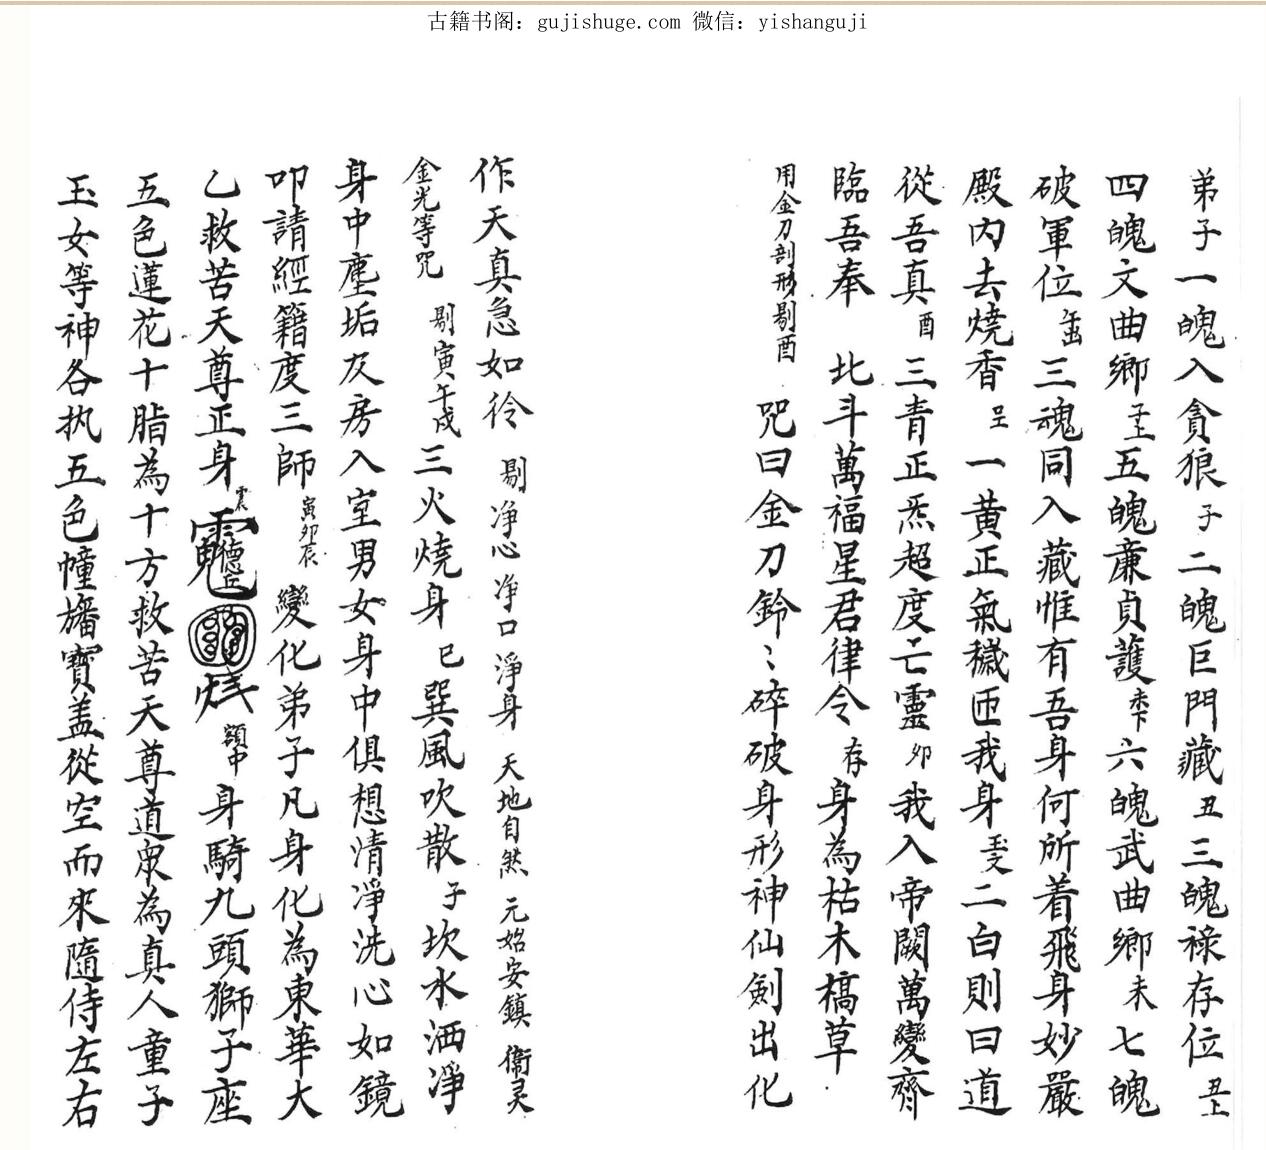 古籍书阁：gujishuge.com 微信：yishanguji
弟子一魄入貪狼子二魄巨門藏丑三魄祿存位丑上
四魄文曲鄉子上五魄廉貞護未下六魄武曲鄉未七魄
破軍位三魂同入藏惟有吾身何所着飛身妙嚴
殿內去燒香一黃正氣穢匝我身二白則曰道
從吾真酉三青正炁超度亡靈卯我入帝闕萬變齊
臨吾奉 北斗萬福星君律令存身為枯木槁草
用金刀剖形剔酉 咒曰金刀鈴〻碎破身形神仙劍出化
作天真急如彾 剔淨心淨口淨身 天地自然 元始安鎮 衛灵
金光等咒 剔寅午戌三火燒身巳巽風吹散子坎水洒凈
身中塵垢及房入室男女身中俱想清凈洗心如鏡
叩請經籍度三師寅卯辰變化弟子凡身化為東華大
乙救苦天尊正身 額中身騎九頭獅子座
五色蓮花十脂為十方救苦天尊道眾為真人童子
玉女等神各执五色幢旛寶盖從空而來隨侍左右